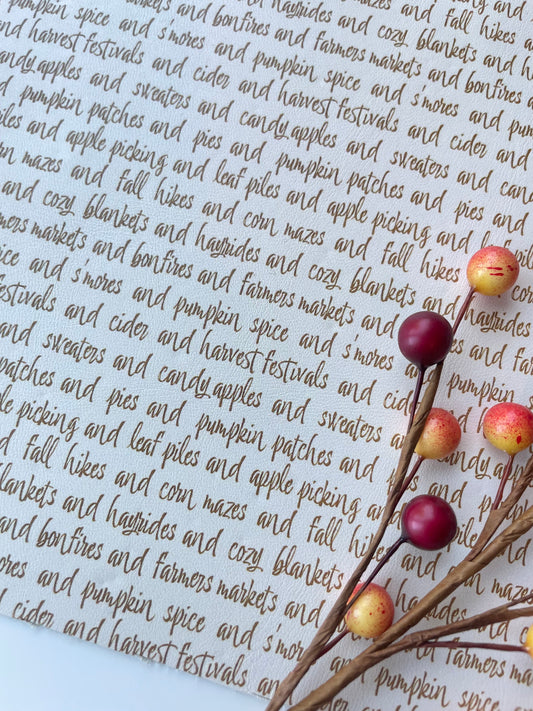 and fall hikes
hayrides and cozy blankets and
and bonfires and farmers markets and bonfires
pumpkin spice and s'mores and pumpkin spice and s'mores and
and harvest festivals and cider and harvest festivals and cider and
candy apples and sweaters and candy apples and sweaters and
pumpkin patches and pies and pumpkin patches and pies and
and apple picking and leaf piles and apple picking and
corn mazes and fall hikes and corn mazes and fall hikes
and cozy blankets and hayrides and cozy blankets and hayrides
markets and bonfires and farmers markets and
and s'mores and pumpkin spice and s'mores and pumpkin
festivals and cider and harvest festivals and cider and
and sweaters and candy apples and sweaters and candy
patches and pies and pumpkin patches and
picking and leaf piles and apple picking and
fall hikes and corn mazes and fall
blankets and hayrides and cozy blankets and hayrides
and bonfires and farmers markets and
and pumpkin spice and s'mores and pumpkin
cider and harvest festivals and